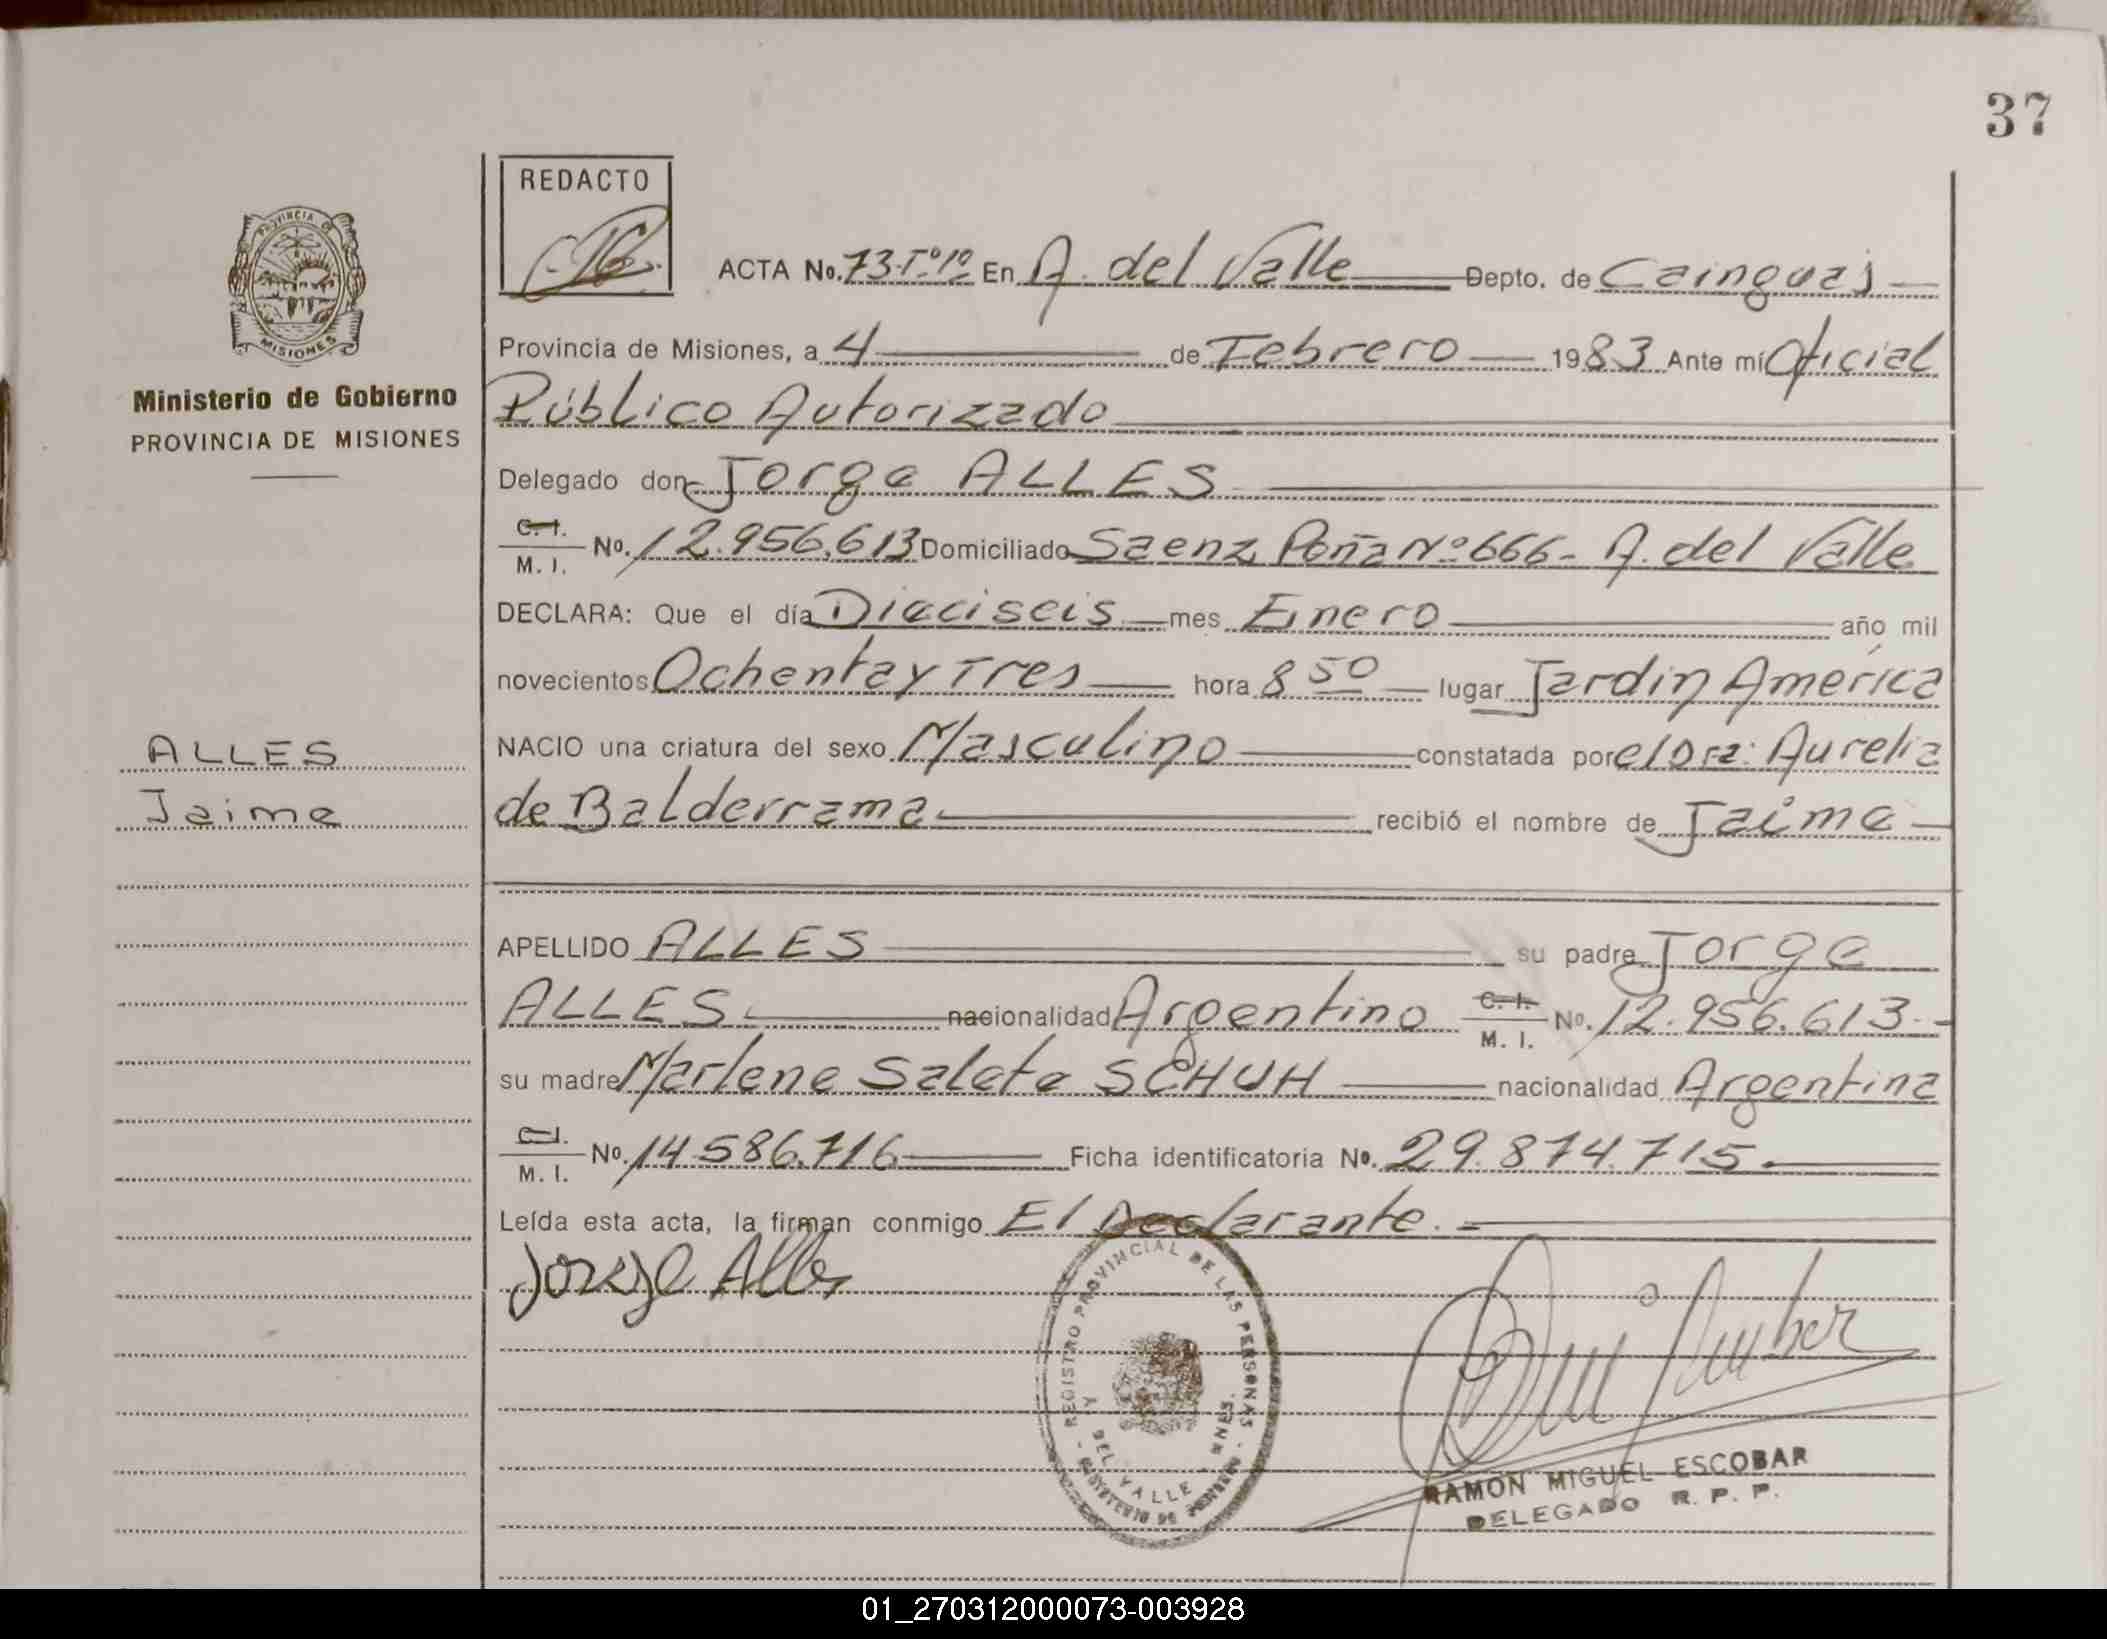 37
REDACTO
PROVINCIA DE
MISIONES
Ministerio de Gobierno
PROVINCIA DE MISIONES
ACTA No. 73-Tº1º En A. del Valle Depto. de Cainguas
Provincia de Misiones, a 4 de Febrero 1983 Ante mí Oficial
Público Autorizado
Delegado don Jorge ALLES
C. I. M. I. No. 12.956.613 Domiciliado Saenz Peña Nº 666- A. del Valle
DECLARA: Que el día Dieciseis mes Enero año mil
novecientos Ochenta y Tres hora 8 50 lugar Jardin América
NACIO una criatura del sexo Masculino constatada por el Dra: Aurelia
de Balderrama recibió el nombre de Jaime
ALLES
Jaime
APELLIDO ALLES su padre Jorge
ALLES nacionalidad Argentino C. I. M. I. No. 12.956.613.-
su madre Marlene Salete SCHUH nacionalidad Argentina
C. I. M. I. No. 14.586.716 Ficha identificatoria No. 29.874.715.
Leída esta acta, la firman conmigo El Declarante.
Jorge Alles
- REGISTRO PROVINCIAL DE LAS PERSONAS -
DEL VALLE
RAMON MIGUEL ESCOBAR
DELEGADO R. P. P.
01_270312000073-003928